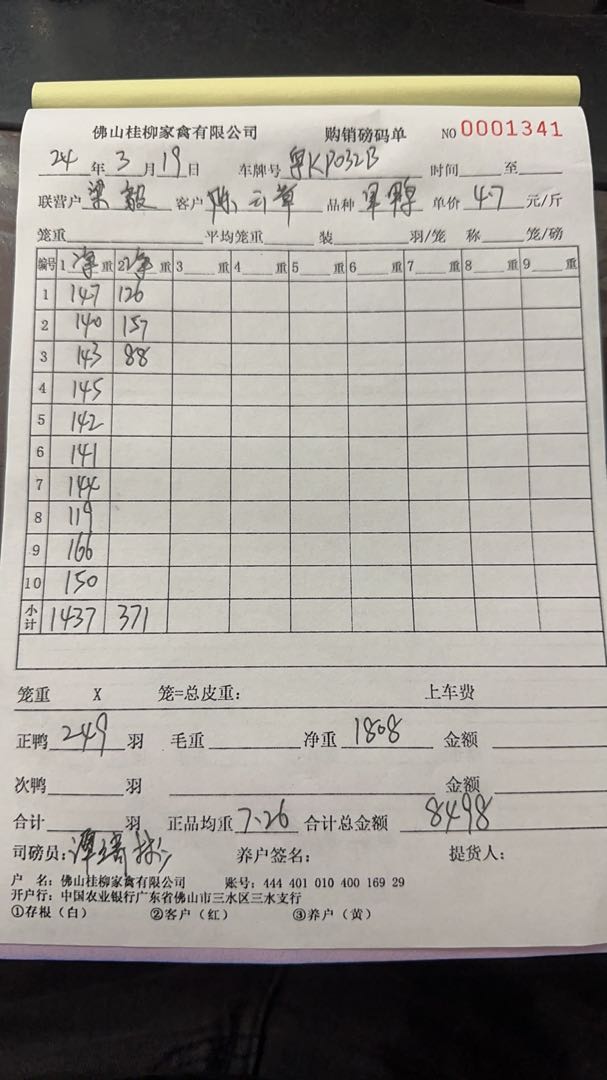 佛山桂柳家禽有限公司 购销磅码单 NO 0001341
24 年 3 月 19 日 车牌号 粤KP032B 时间 至
联营户 梁毅 客户 陈云草 品种 单价 4.7 元/斤
笼重 平均笼重 装 羽/笼 称 笼/磅
编号 1 净 重 2 净 重 3 重 4 重 5 重 6 重 7 重 8 重 9 重
1 147 126
2 140 157
3 143 88
4 145
5 142
6 141
7 144
8 119
9 166
10 150
小计 1437 371
笼重 X 笼=总皮重: 上车费
正鸭 249 羽 毛重 净重 1808 金额
次鸭 羽 金额
合计 羽 正品均重 7.26 合计总金额 8498
司磅员: 养户签名: 提货人:
户 名: 佛山桂柳家禽有限公司 账号: 444 401 010 400 169 29
开户行: 中国农业银行广东省佛山市三水区三水支行
①存根（白） ②客户（红） ③养户（黄）